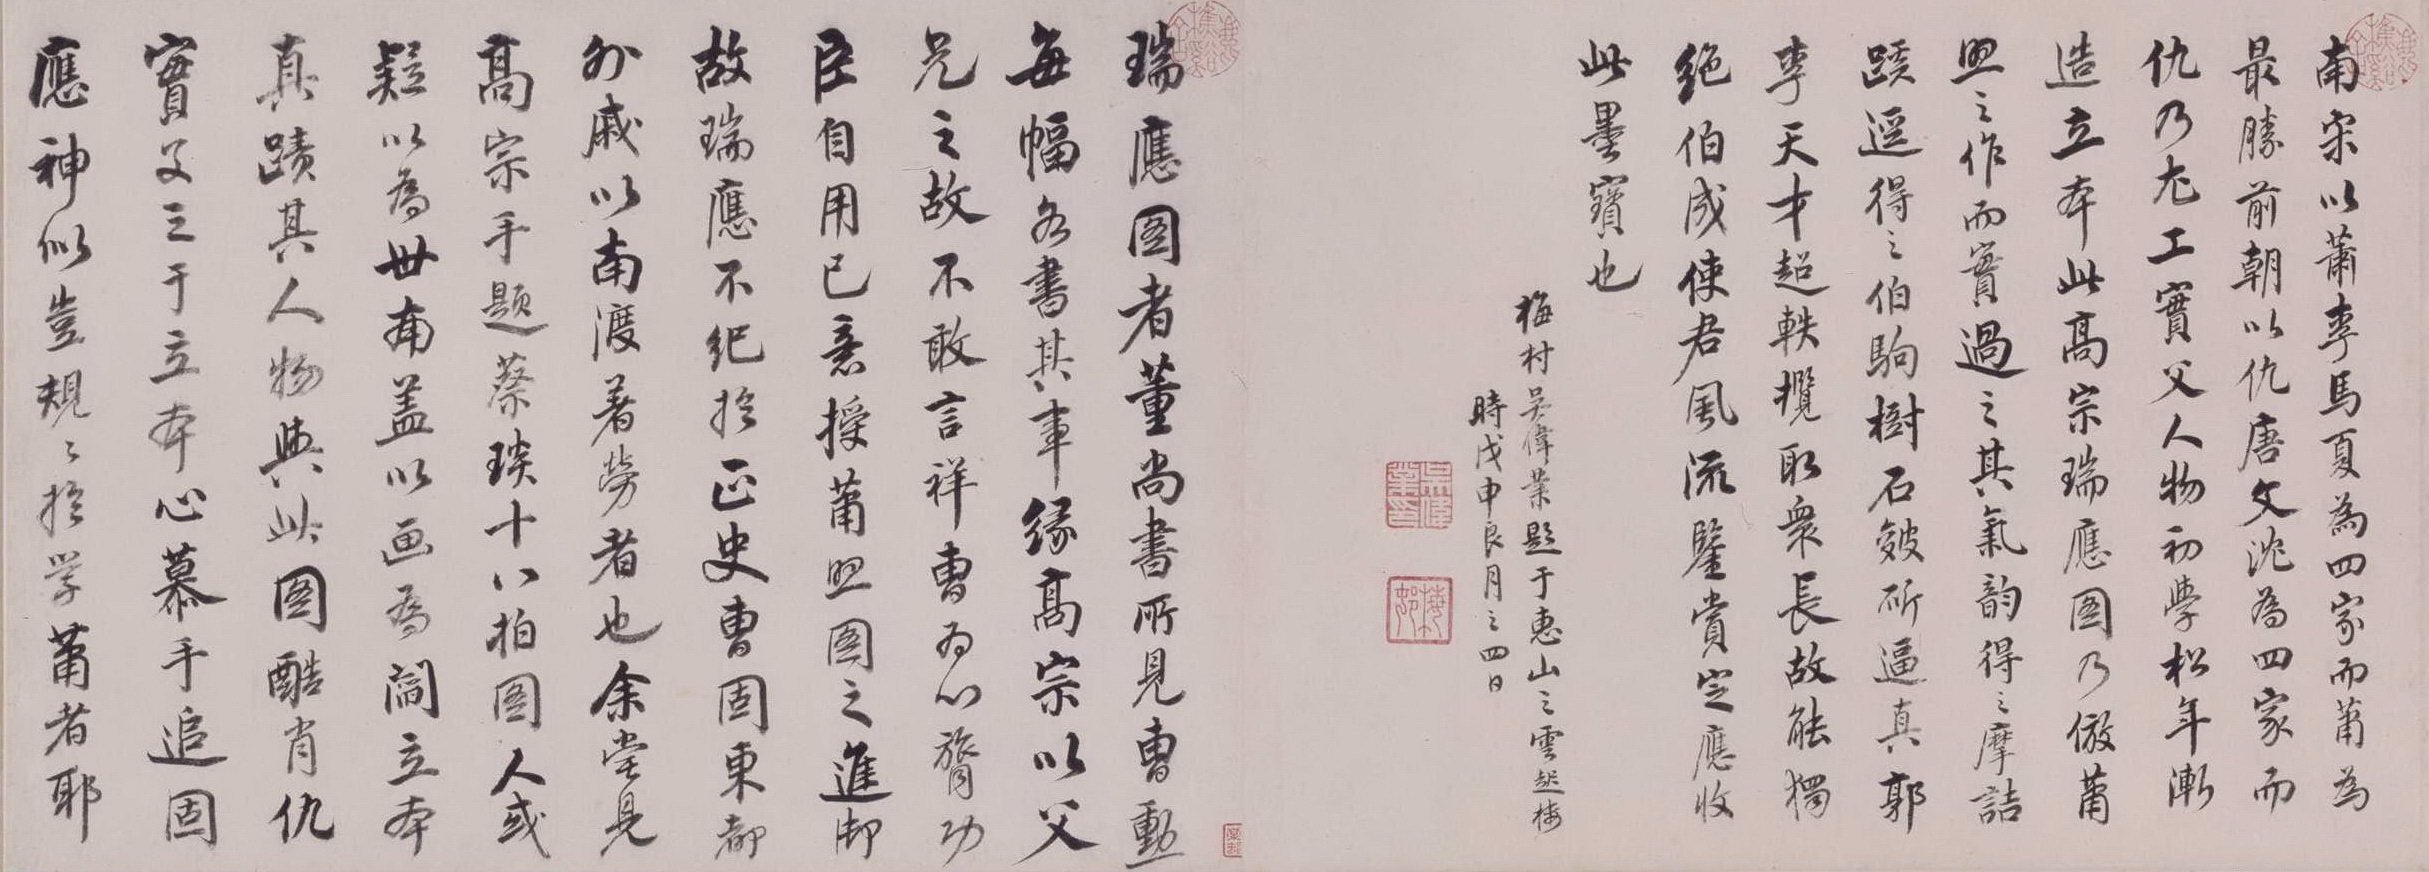 南宋以蕭李馬夏為四家而蕭為
最勝前朝以仇唐文沈為四家而
仇乃尤工實父人物初學松年漸
造立本此高宗瑞應图乃倣蕭
照之作而實過之其氣韵得之摩詰
蹊逕得之伯駒樹石皴斫逼真郭
李天才超軼攬取衆長故能獨
绝伯成使君風流鑒賞定應收
此墨寶也
梅村吳偉業題于惠山之雲起楼
時戊申良月之四日
吳偉業印
梅邨
瑞應图者董尚書所見曹勛
每幅各書其事缘高宗以父
兄之故不敢言祥曹为心膂功
臣自用已意授蕭照图之進御
故瑞應不纪於正史曹固東都
外戚以南渡著勞者也余嘗見
高宗手题蔡琰十八拍图人或
疑以為世南盖以画為阎立本
真蹟其人物與此图酷肖仇
實父三于立本心慕手追固
應神似豈規〻於学蕭者耶